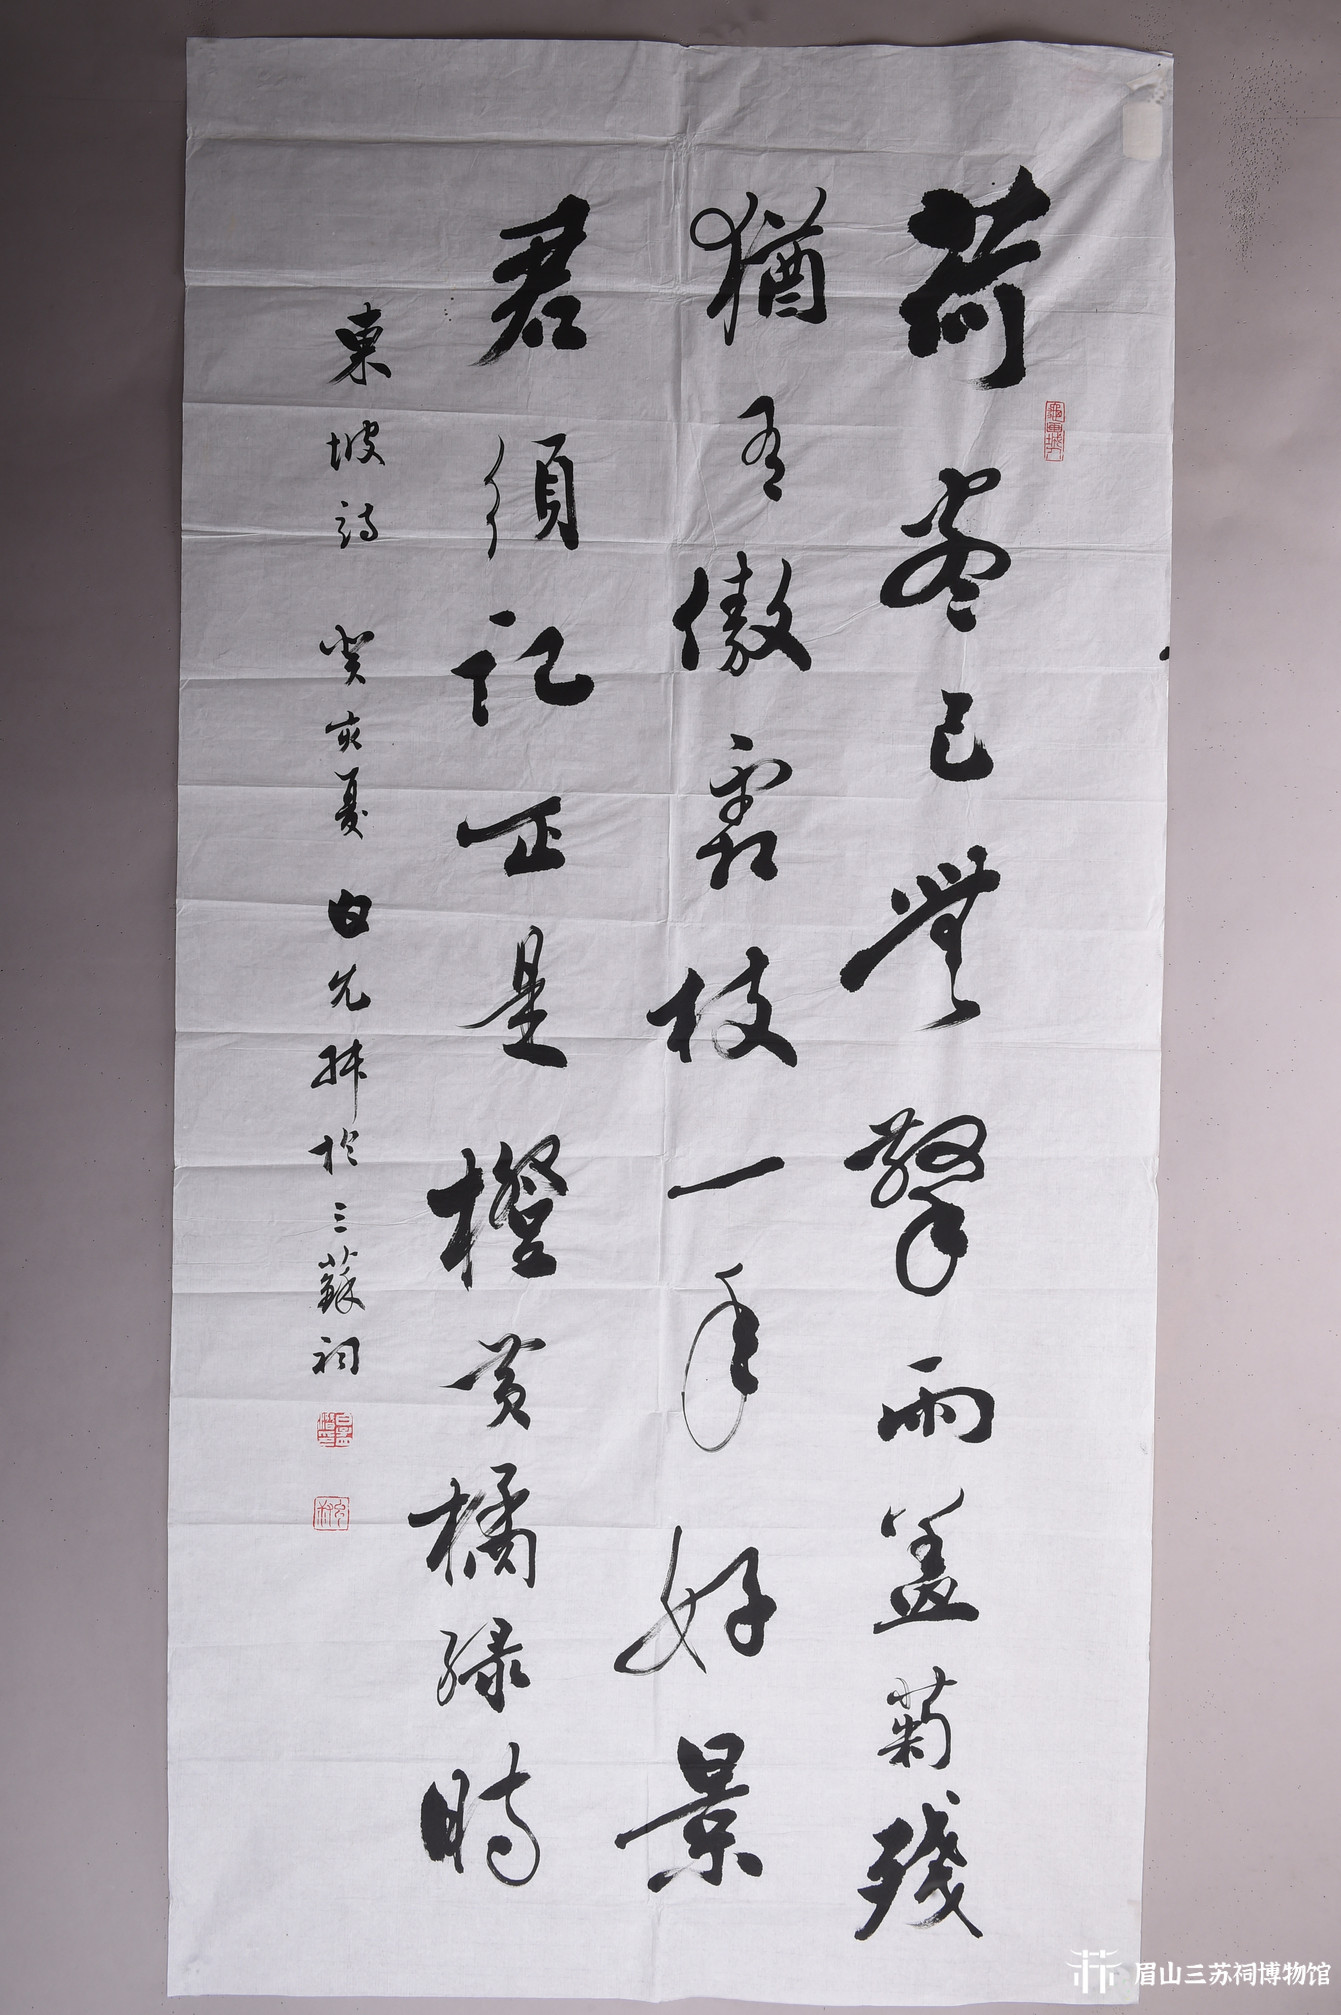 荷尽已無擎雨盖菊残
猶有傲霜枝一年好景
君須記正是橙黄橘緑時
東坡詩 癸亥夏 白允叔於三蘇祠
眉山三苏祠博物馆